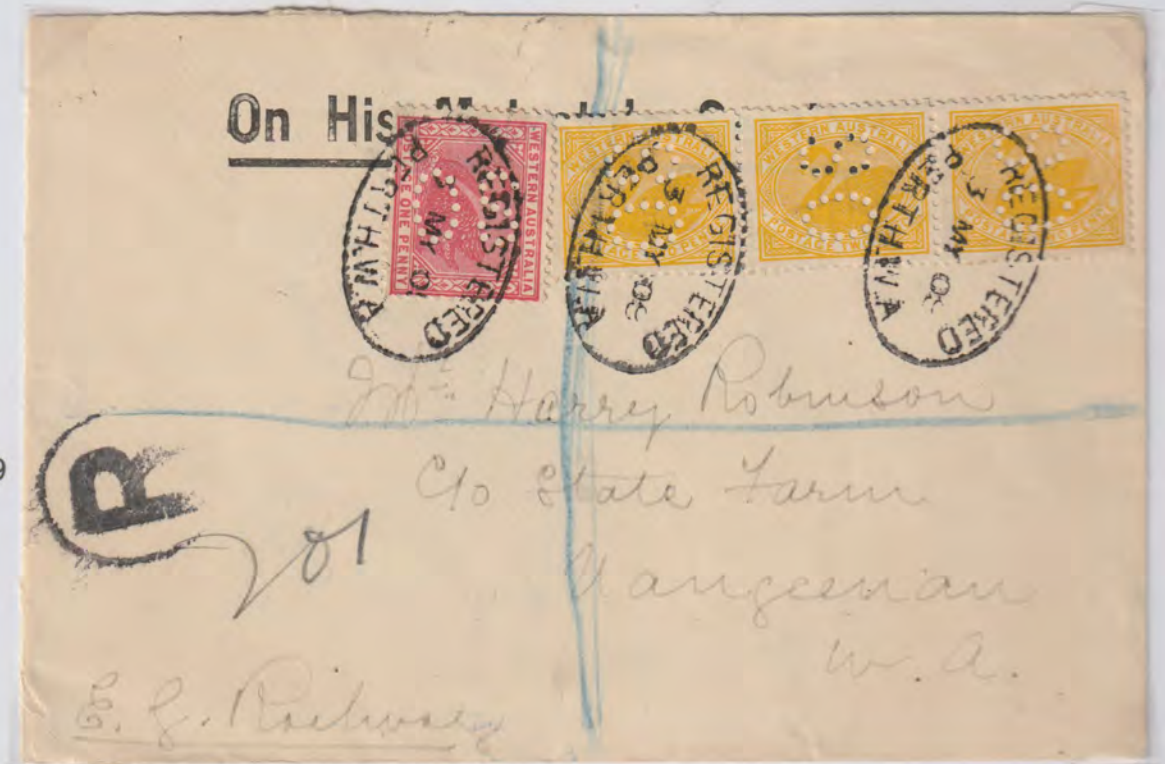 On His
WESTERN AUSTRALIA
POSTAGE ONE PENNY
WESTERN AUSTRALIA
POSTAGE TWO
WESTERN AUSTRALIA
REGISTERED
MY
PERTH.W.A
REGISTERED
3 MY 08
PERTH W.A
REGISTERED
3 MY 08
PERTH W.A
Mr. Harry Robinson
C/o State Farm
Nangeenan
W. A.
R
201
E. G. Railway
9